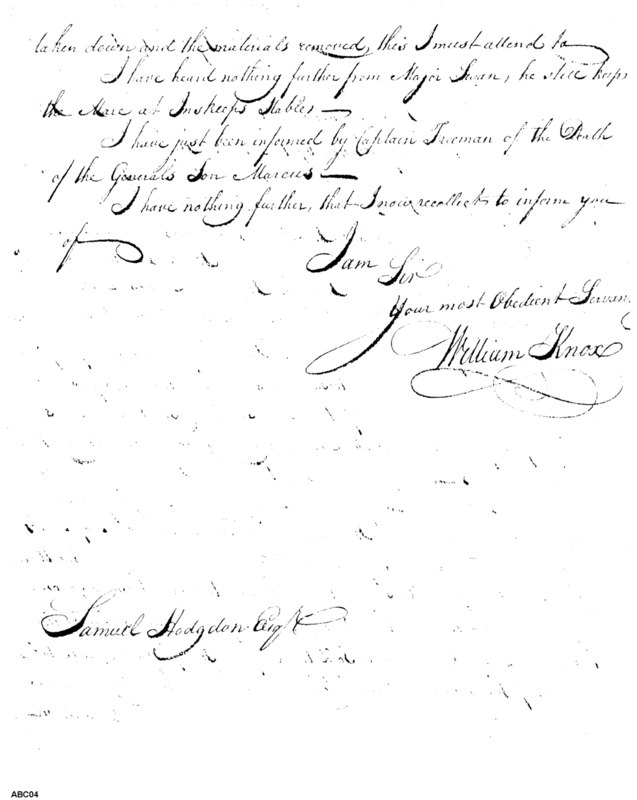 taken down and the materials removed, this I must attend to
I have heard nothing further from Major Swan, he still keeps
the Mare at Inskeeps Stables —
I have just been informed by Captain Freeman of the Death
of the Generals Son Marcus —
I have nothing further, that I now recollect to inform you
of
I am Sir
Your most Obedient Servant
William Knox
Samuel Hodgdon Esqr
ABC04